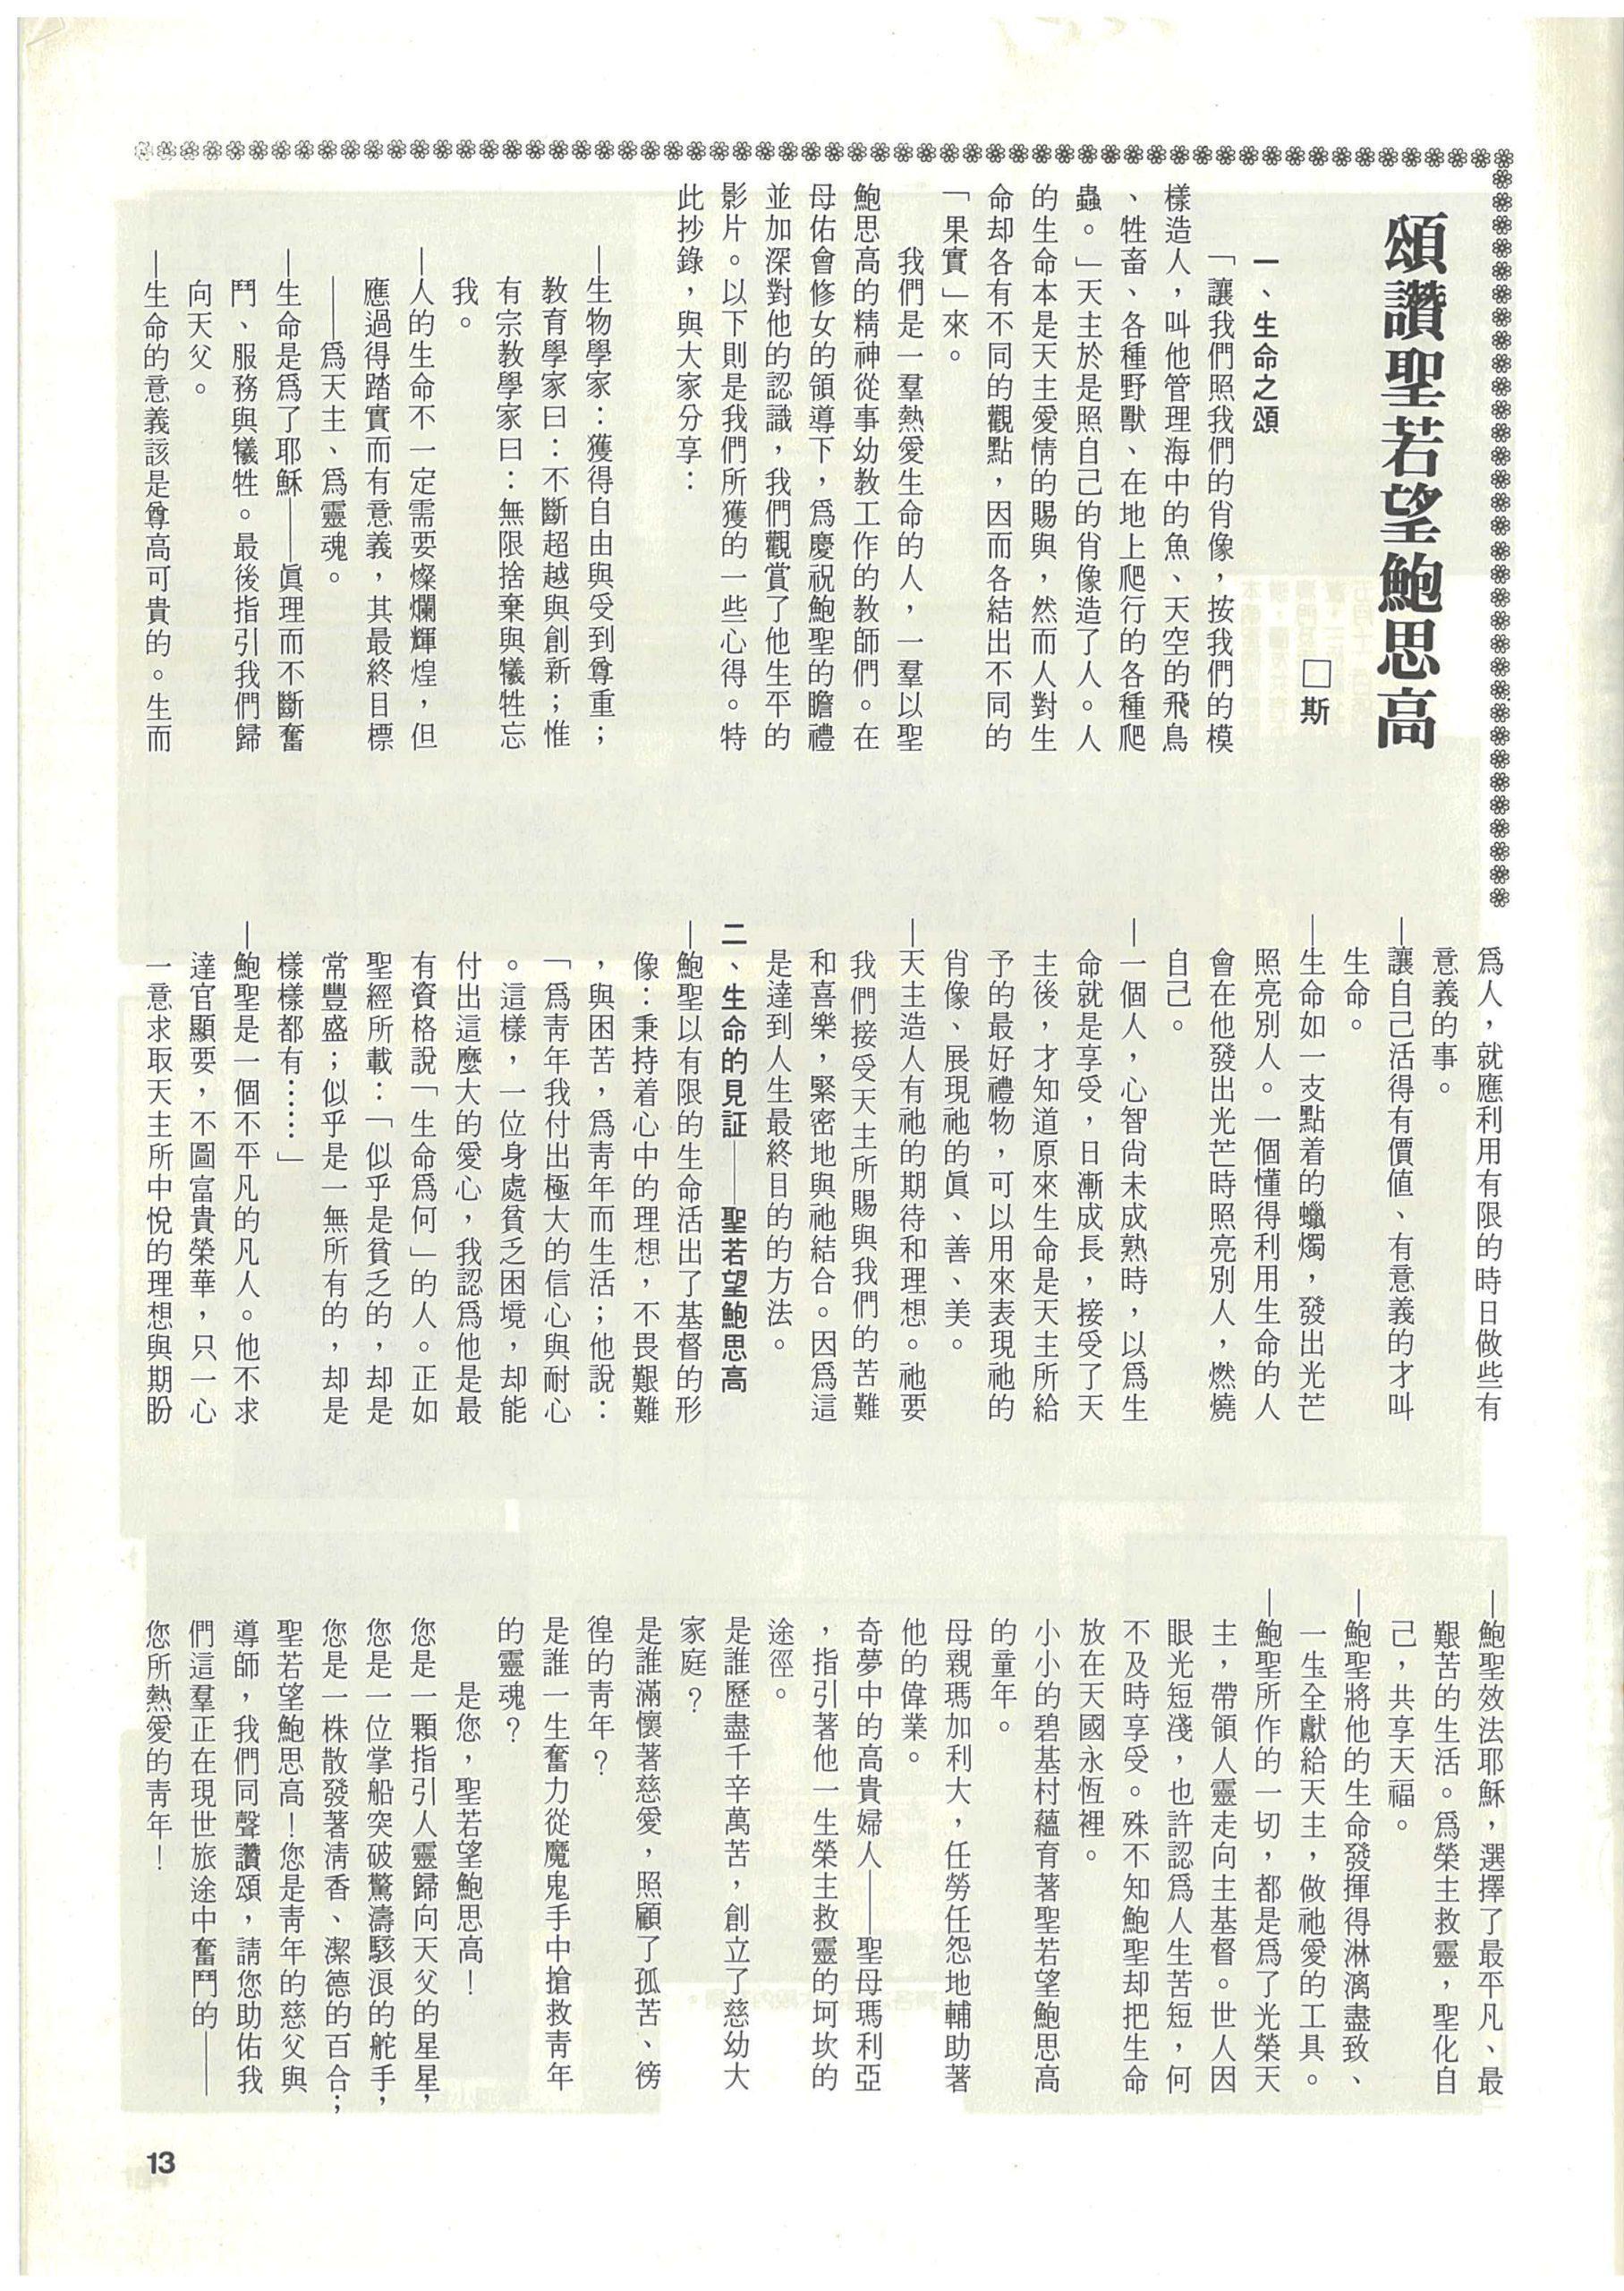 頌讚聖若望鮑思高
□斯
一、生命之頌
「讓我們照我們的肖像，按我們的模
樣造人，叫他管理海中的魚、天空的飛鳥
、牲畜、各種野獸、在地上爬行的各種爬
蟲。」天主於是照自己的肖像造了人。人
的生命本是天主愛情的賜與，然而人對生
命却各有不同的觀點，因而各結出不同的
「果實」來。
我們是一羣熱愛生命的人，一羣以聖
鮑思高的精神從事幼教工作的教師們。在
母佑會修女的領導下，爲慶祝鮑聖的瞻禮
並加深對他的認識，我們觀賞了他生平的
影片。以下則是我們所獲的一些心得。特
此抄錄，與大家分享：
—生物學家：獲得自由與受到尊重；
教育學家曰：不斷超越與創新；惟
有宗教學家曰：無限捨棄與犧牲忘
我。
—人的生命不一定需要燦爛輝煌，但
應過得踏實而有意義，其最終目標
——爲天主、爲靈魂。
—生命是爲了耶穌——眞理而不斷奮
鬥、服務與犧牲。最後指引我們歸
向天父。
—生命的意義該是尊高可貴的。生而
爲人，就應利用有限的時日做些有
意義的事。
—讓自己活得有價值、有意義的才叫
生命。
—生命如一支點着的蠟燭，發出光芒
照亮別人。一個懂得利用生命的人
會在他發出光芒時照亮別人，燃燒
自己。
—一個人，心智尙未成熟時，以爲生
命就是享受，日漸成長，接受了天
主後，才知道原來生命是天主所給
予的最好禮物，可以用來表現祂的
肖像、展現祂的眞、善、美。
—天主造人有祂的期待和理想。祂要
我們接受天主所賜與我們的苦難
和喜樂，緊密地與祂結合。因爲這
是達到人生最終目的的方法。
二、生命的見証——聖若望鮑思高
—鮑聖以有限的生命活出了基督的形
像：秉持着心中的理想，不畏艱難
，與困苦，爲靑年而生活；他說：
「爲靑年我付出極大的信心與耐心
。這樣，一位身處貧乏困境，却能
付出這麼大的愛心，我認爲他是最
有資格說「生命爲何」的人。正如
聖經所載：「似乎是貧乏的，却是
常豐盛；似乎是一無所有的，却是
樣樣都有……」
—鮑聖是一個不平凡的凡人。他不求
達官顯要，不圖富貴榮華，只一心
一意求取天主所中悅的理想與期盼
—鮑聖效法耶穌，選擇了最平凡、最
艱苦的生活。爲榮主救靈，聖化自
己，共享天福。
—鮑聖將他的生命發揮得淋漓盡致、
一生全獻給天主，做祂愛的工具。
—鮑聖所作的一切，都是爲了光榮天
主，帶領人靈走向主基督。世人因
眼光短淺，也許認爲人生苦短，何
不及時享受。殊不知鮑聖却把生命
放在天國永恆裡。
小小的碧基村蘊育著聖若望鮑思高
的童年。
母親瑪加利大，任勞任怨地輔助著
他的偉業。
奇夢中的高貴婦人——聖母瑪利亞
，指引著他一生榮主救靈的坷坎的
途徑。
是誰歷盡千辛萬苦，創立了慈幼大
家庭？
是誰滿懷著慈愛，照顧了孤苦、徬
徨的靑年？
是誰一生奮力從魔鬼手中搶救靑年
的靈魂？
是您，聖若望鮑思高！
您是一顆指引人靈歸向天父的星星，
您是一位掌船突破驚濤駭浪的舵手，
您是一株散發著淸香、潔德的百合；
聖若望鮑思高！您是靑年的慈父與
導師，我們同聲讚頌，請您助佑我
們這羣正在現世旅途中奮鬥的——
您所熱愛的靑年！
13